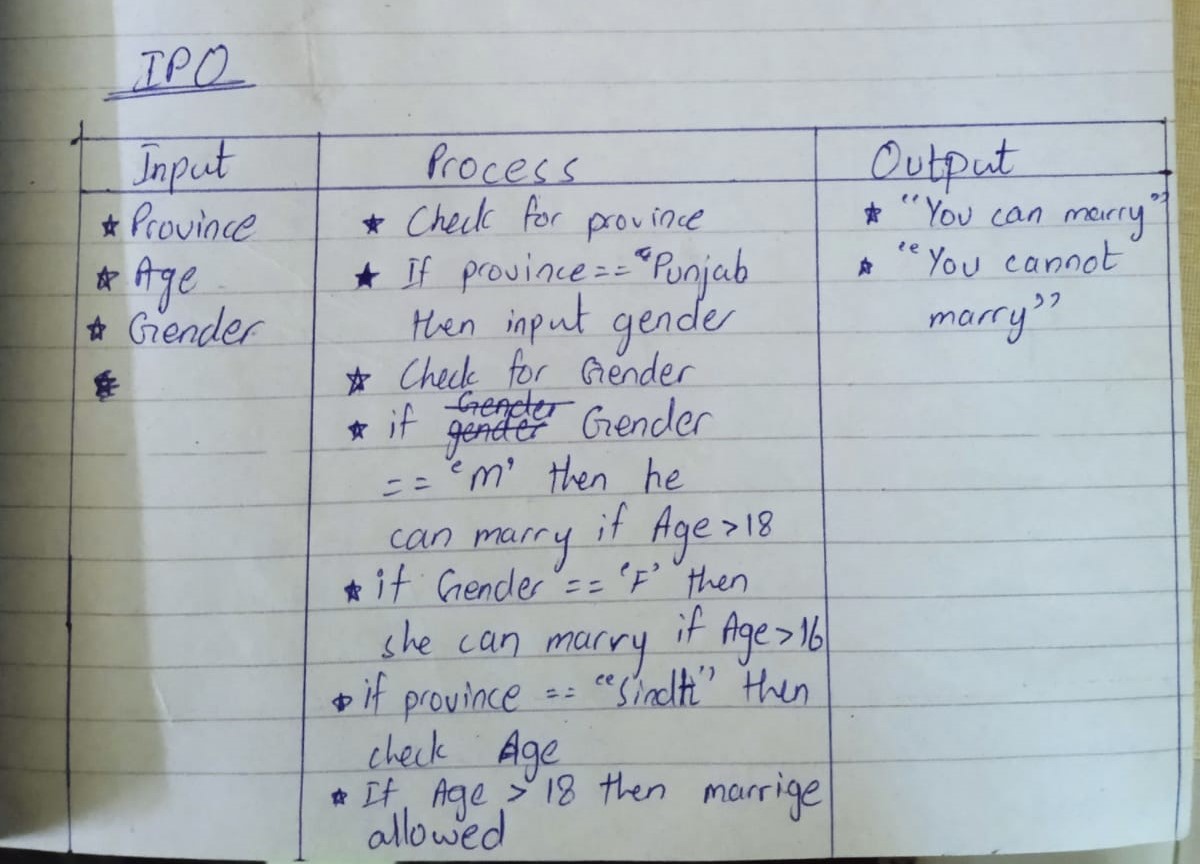 IPO
Input
★ Province
★ Age
★ Gender
Process
★ Check for province
★ If province == "Punjab
then input gender
★ Check for Gender
★ if Gender
gender Gender
== 'M' then he
can marry if Age > 18
★ if Gender == 'F' then
she can marry if Age > 16
★ if province == "Sindh" then
check Age
★ If Age > 18 then marrige
allowed
Output
★ "You can marry"
★ "You cannot
marry"